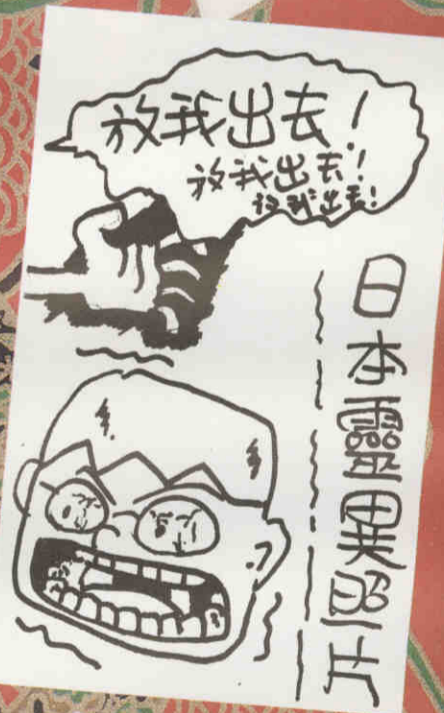 放我出去!
放我出去!
放我出去!
日本靈異照片